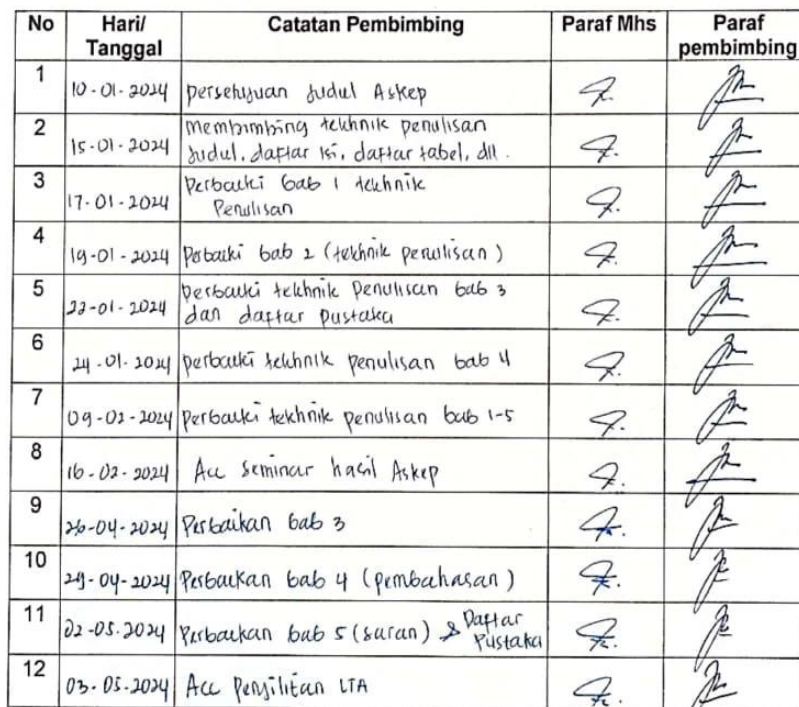 No Hari/ Tanggal Catatan Pembimbing Paraf Mhs Paraf pembimbing
1 10-01-2024 persetujuan Judul Askep
2 15-01-2024 membimbing tekhnik penulisan
Judul, daftar isi, daftar tabel, dll.
3 17-01-2024 Perbaiki bab 1 tekhnik
Penulisan
4 19-01-2024 Perbaiki bab 2 (tekhnik penulisan)
5 22-01-2024 perbaiki tekhnik penulisan bab 3
dan daftar pustaka
6 24-01-2024 perbaiki tekhnik penulisan bab 4
7 09-02-2024 perbaiki tekhnik penulisan bab 1-5
8 16-02-2024 Acc seminar hasil Askep
9 26-04-2024 Perbaikan bab 3
10 29-04-2024 Perbaikan bab 4 (pembahasan)
11 02-05-2024 Perbaikan bab 5 (saran) & Daftar
Pustaka
12 03-05-2024 Acc Penjilitan LTA